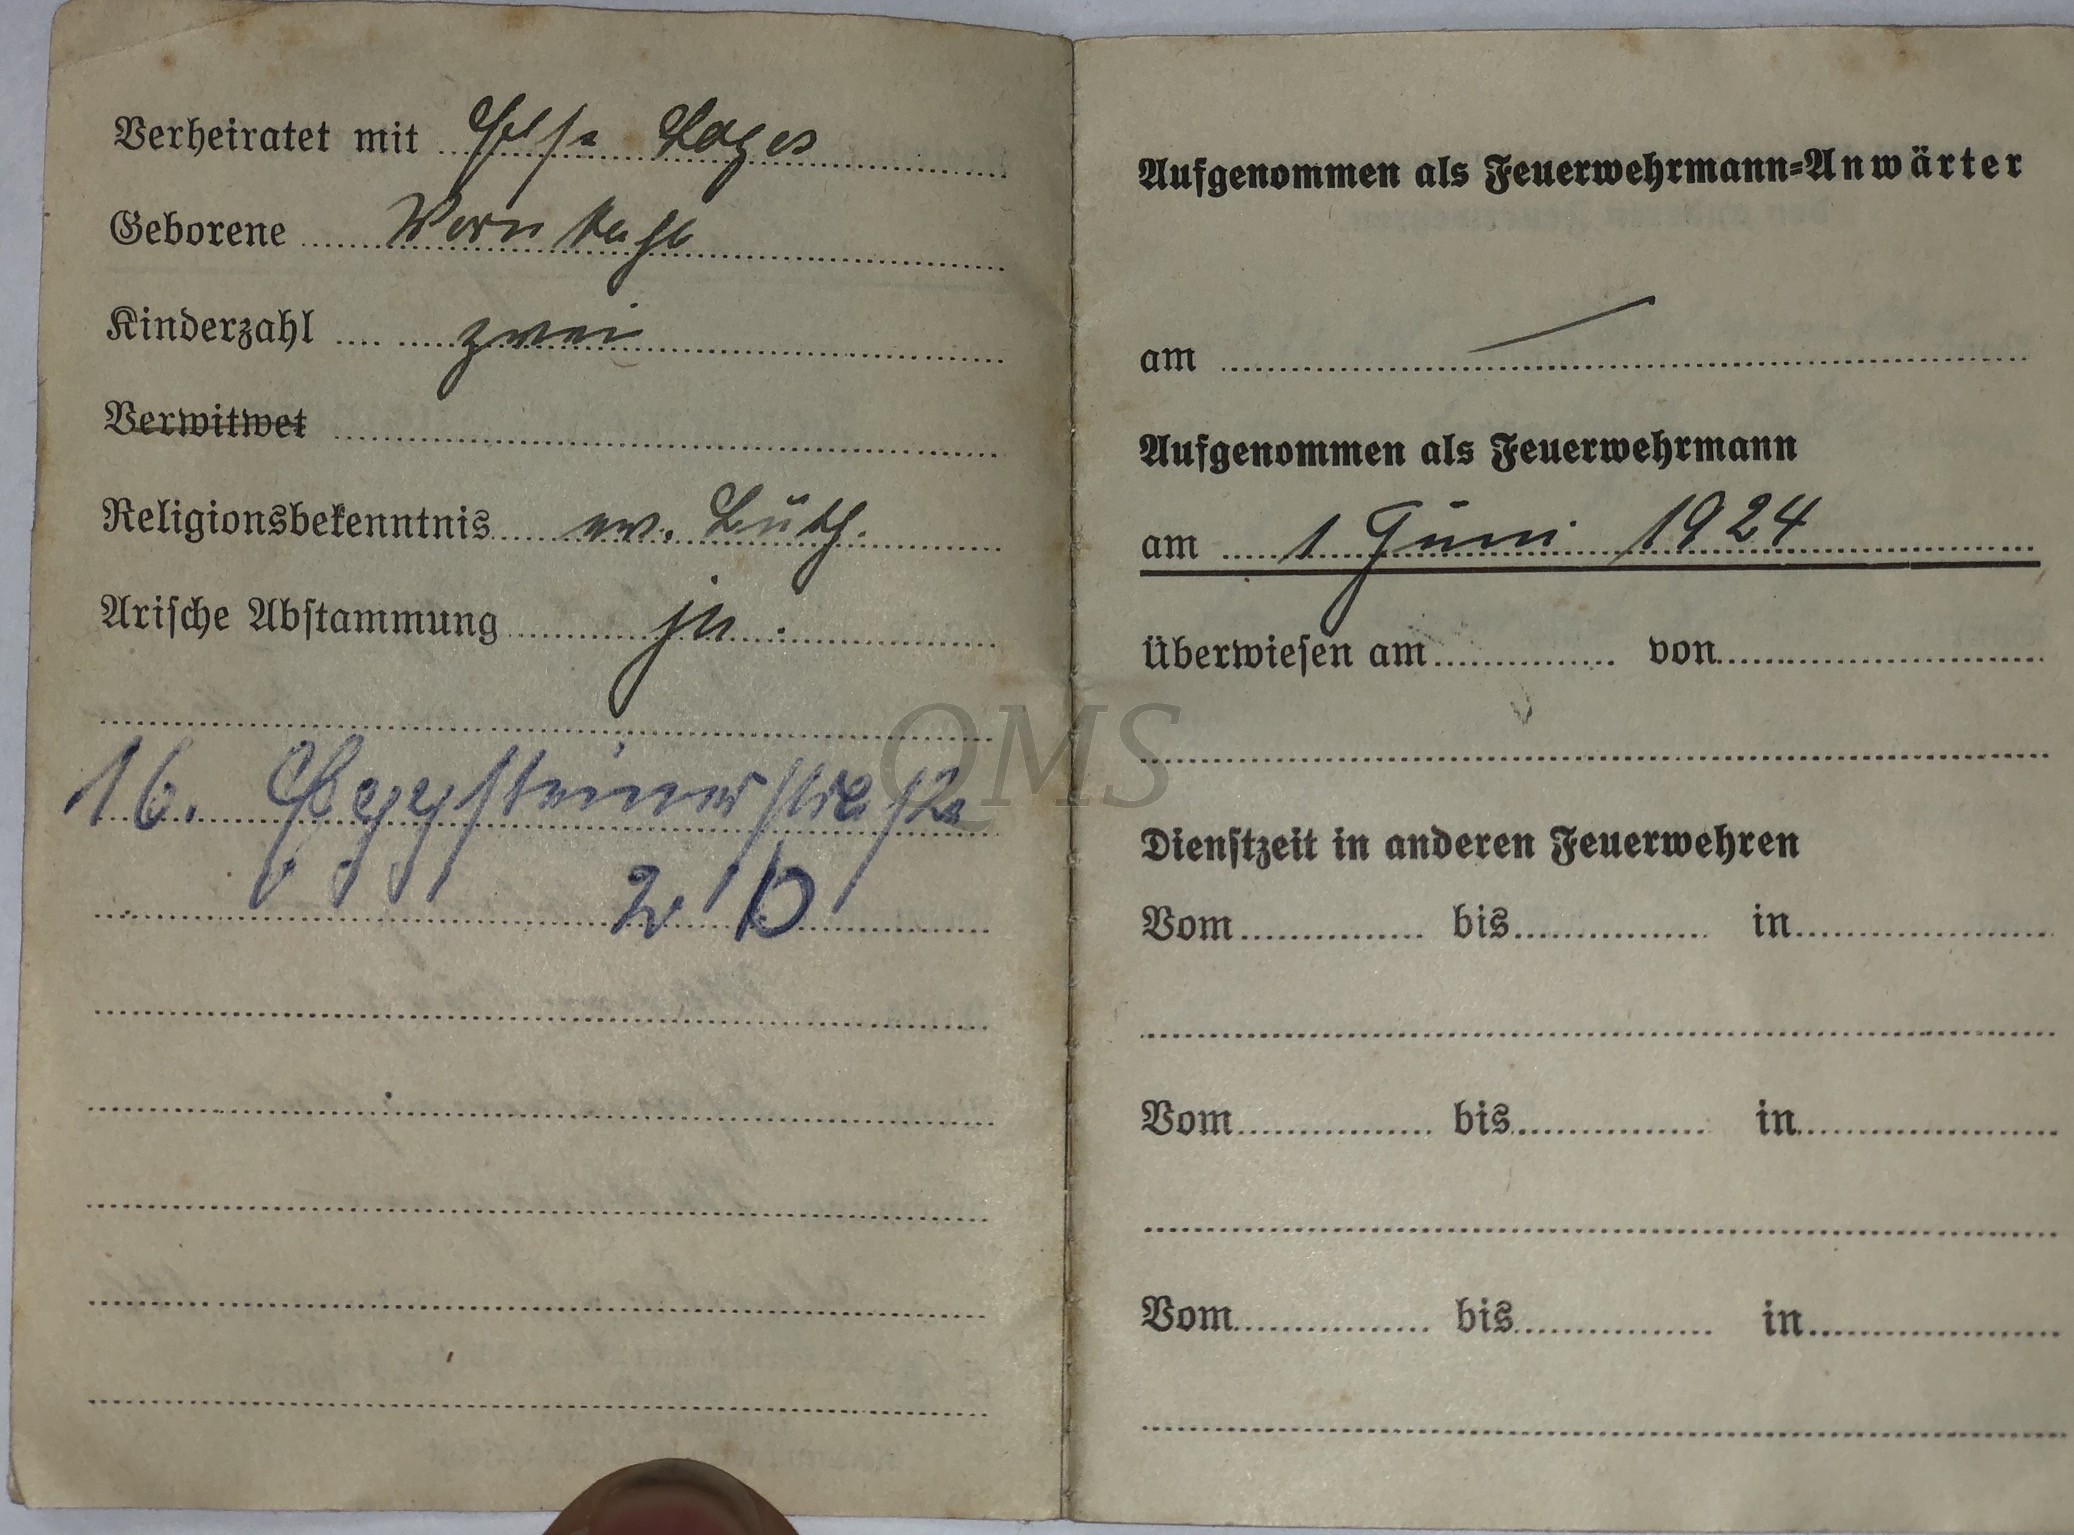 Verheiratet mit Else Lages
Geborene
Kinderzahl zwei
Verwitwet
Religionsbekenntnis ev. Luth.
Arische Abstammung ja.
16.
2 b
Aufgenommen als Feuerwehrmann=Anwärter
am
Aufgenommen als Feuerwehrmann
am 1 Juni 1924
Überwiesen am von
Dienstzeit in anderen Feuerwehren
Vom bis in
Vom bis in
Vom bis in
QMS